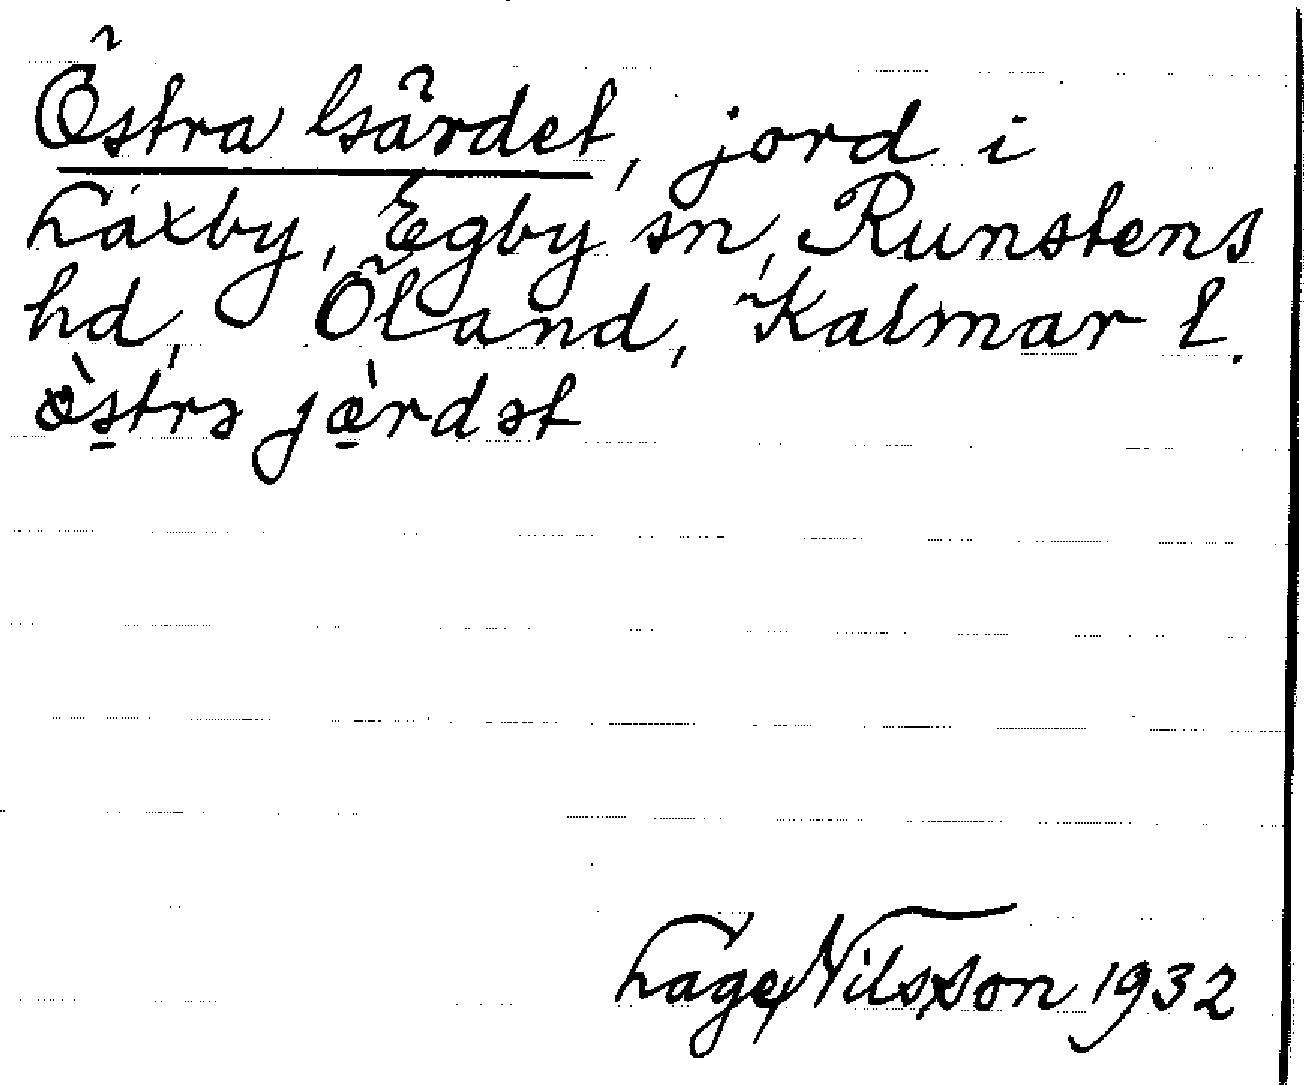 Östra Gärdet, jord i
Laxby, Egby sn, Runstens
hd, Öland, Kalmar l.
ö̀s̲trə jæ̲̀rdət
Lage Nilsson 1932